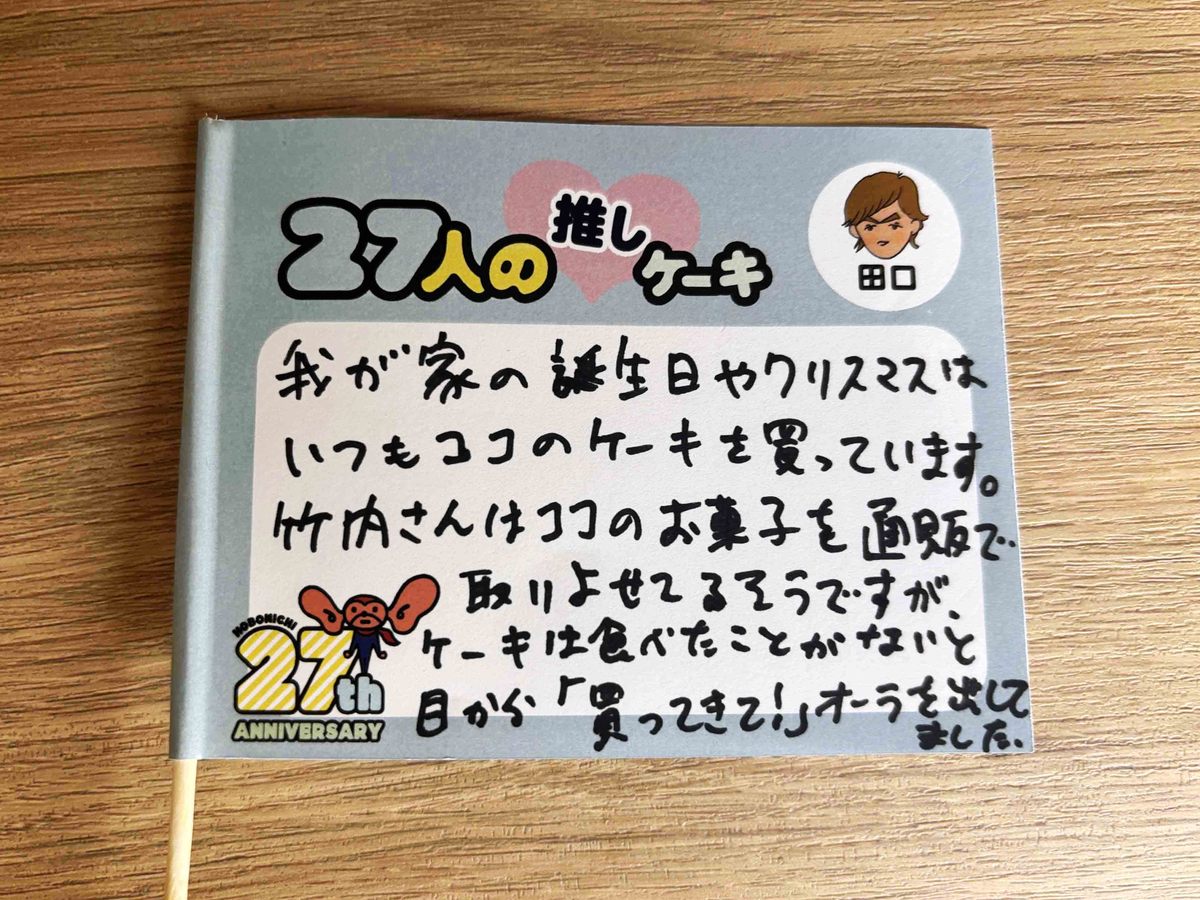 27人の推しケーキ
田口
我が家の誕生日やクリスマスは
いつもココのケーキを買っています。
竹内さんはココのお菓子を通販で
取りよせてるそうですが、
ケーキは食べたことがないと
目から「買ってきて!」オーラを出して
ました。
HOBONICHI
27th
ANNIVERSARY